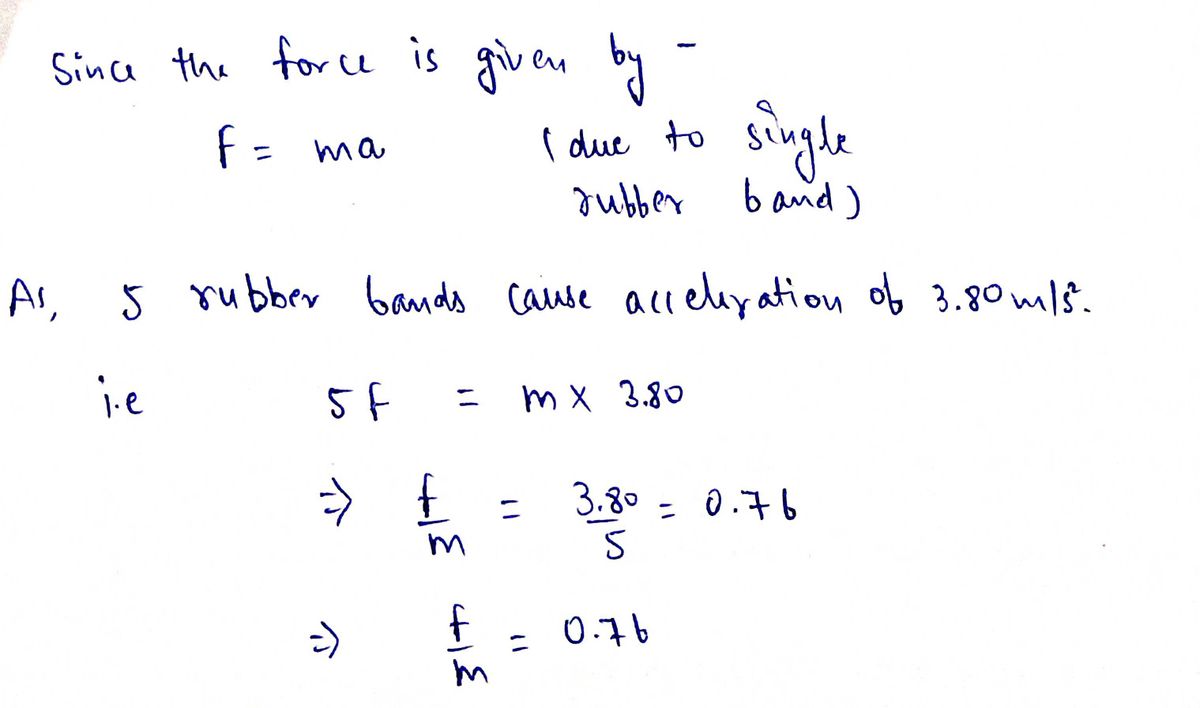 Since the force is given by -
f = ma (due to single
rubber band)
As, 5 rubber bands cause acceleration of 3.80 m/s².
i.e 5f = m x 3.80
=> f/m = 3.80/5 = 0.76
=> f/m = 0.76